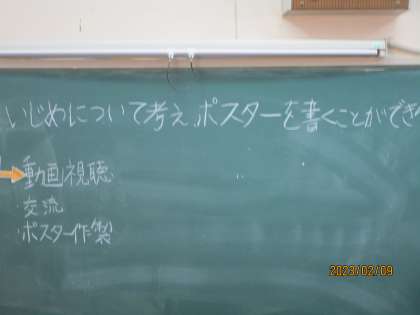 いじめについて考え、ポスターを書くことができ
・動画視聴
・交流
・ポスター作製
2023/02/09